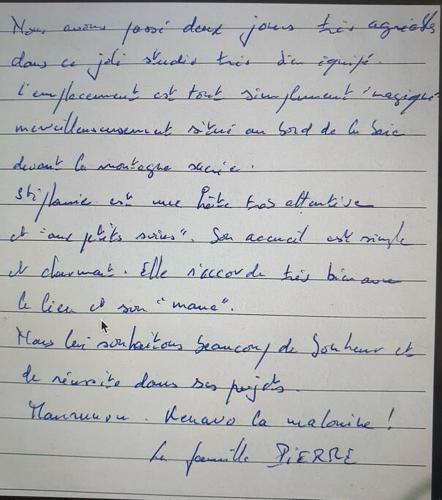 Nous avons passé deux jours très agréables
dans ce joli studio très bien équipé.
L'emplacement est tout simplement "magique"
merveilleusement situé au bord de la baie
devant la montagne sacrée.
Stéphanie est une hôte très attentive
et "aux petits soins". Son accueil est simple
et charmant. Elle s'accorde très bien avec
le lieu et son "mana".
Nous lui souhaitons beaucoup de bonheur et
de réussite dans ses projets.
Mauruuru. Kenavo la malouine !
La famille PIERRE